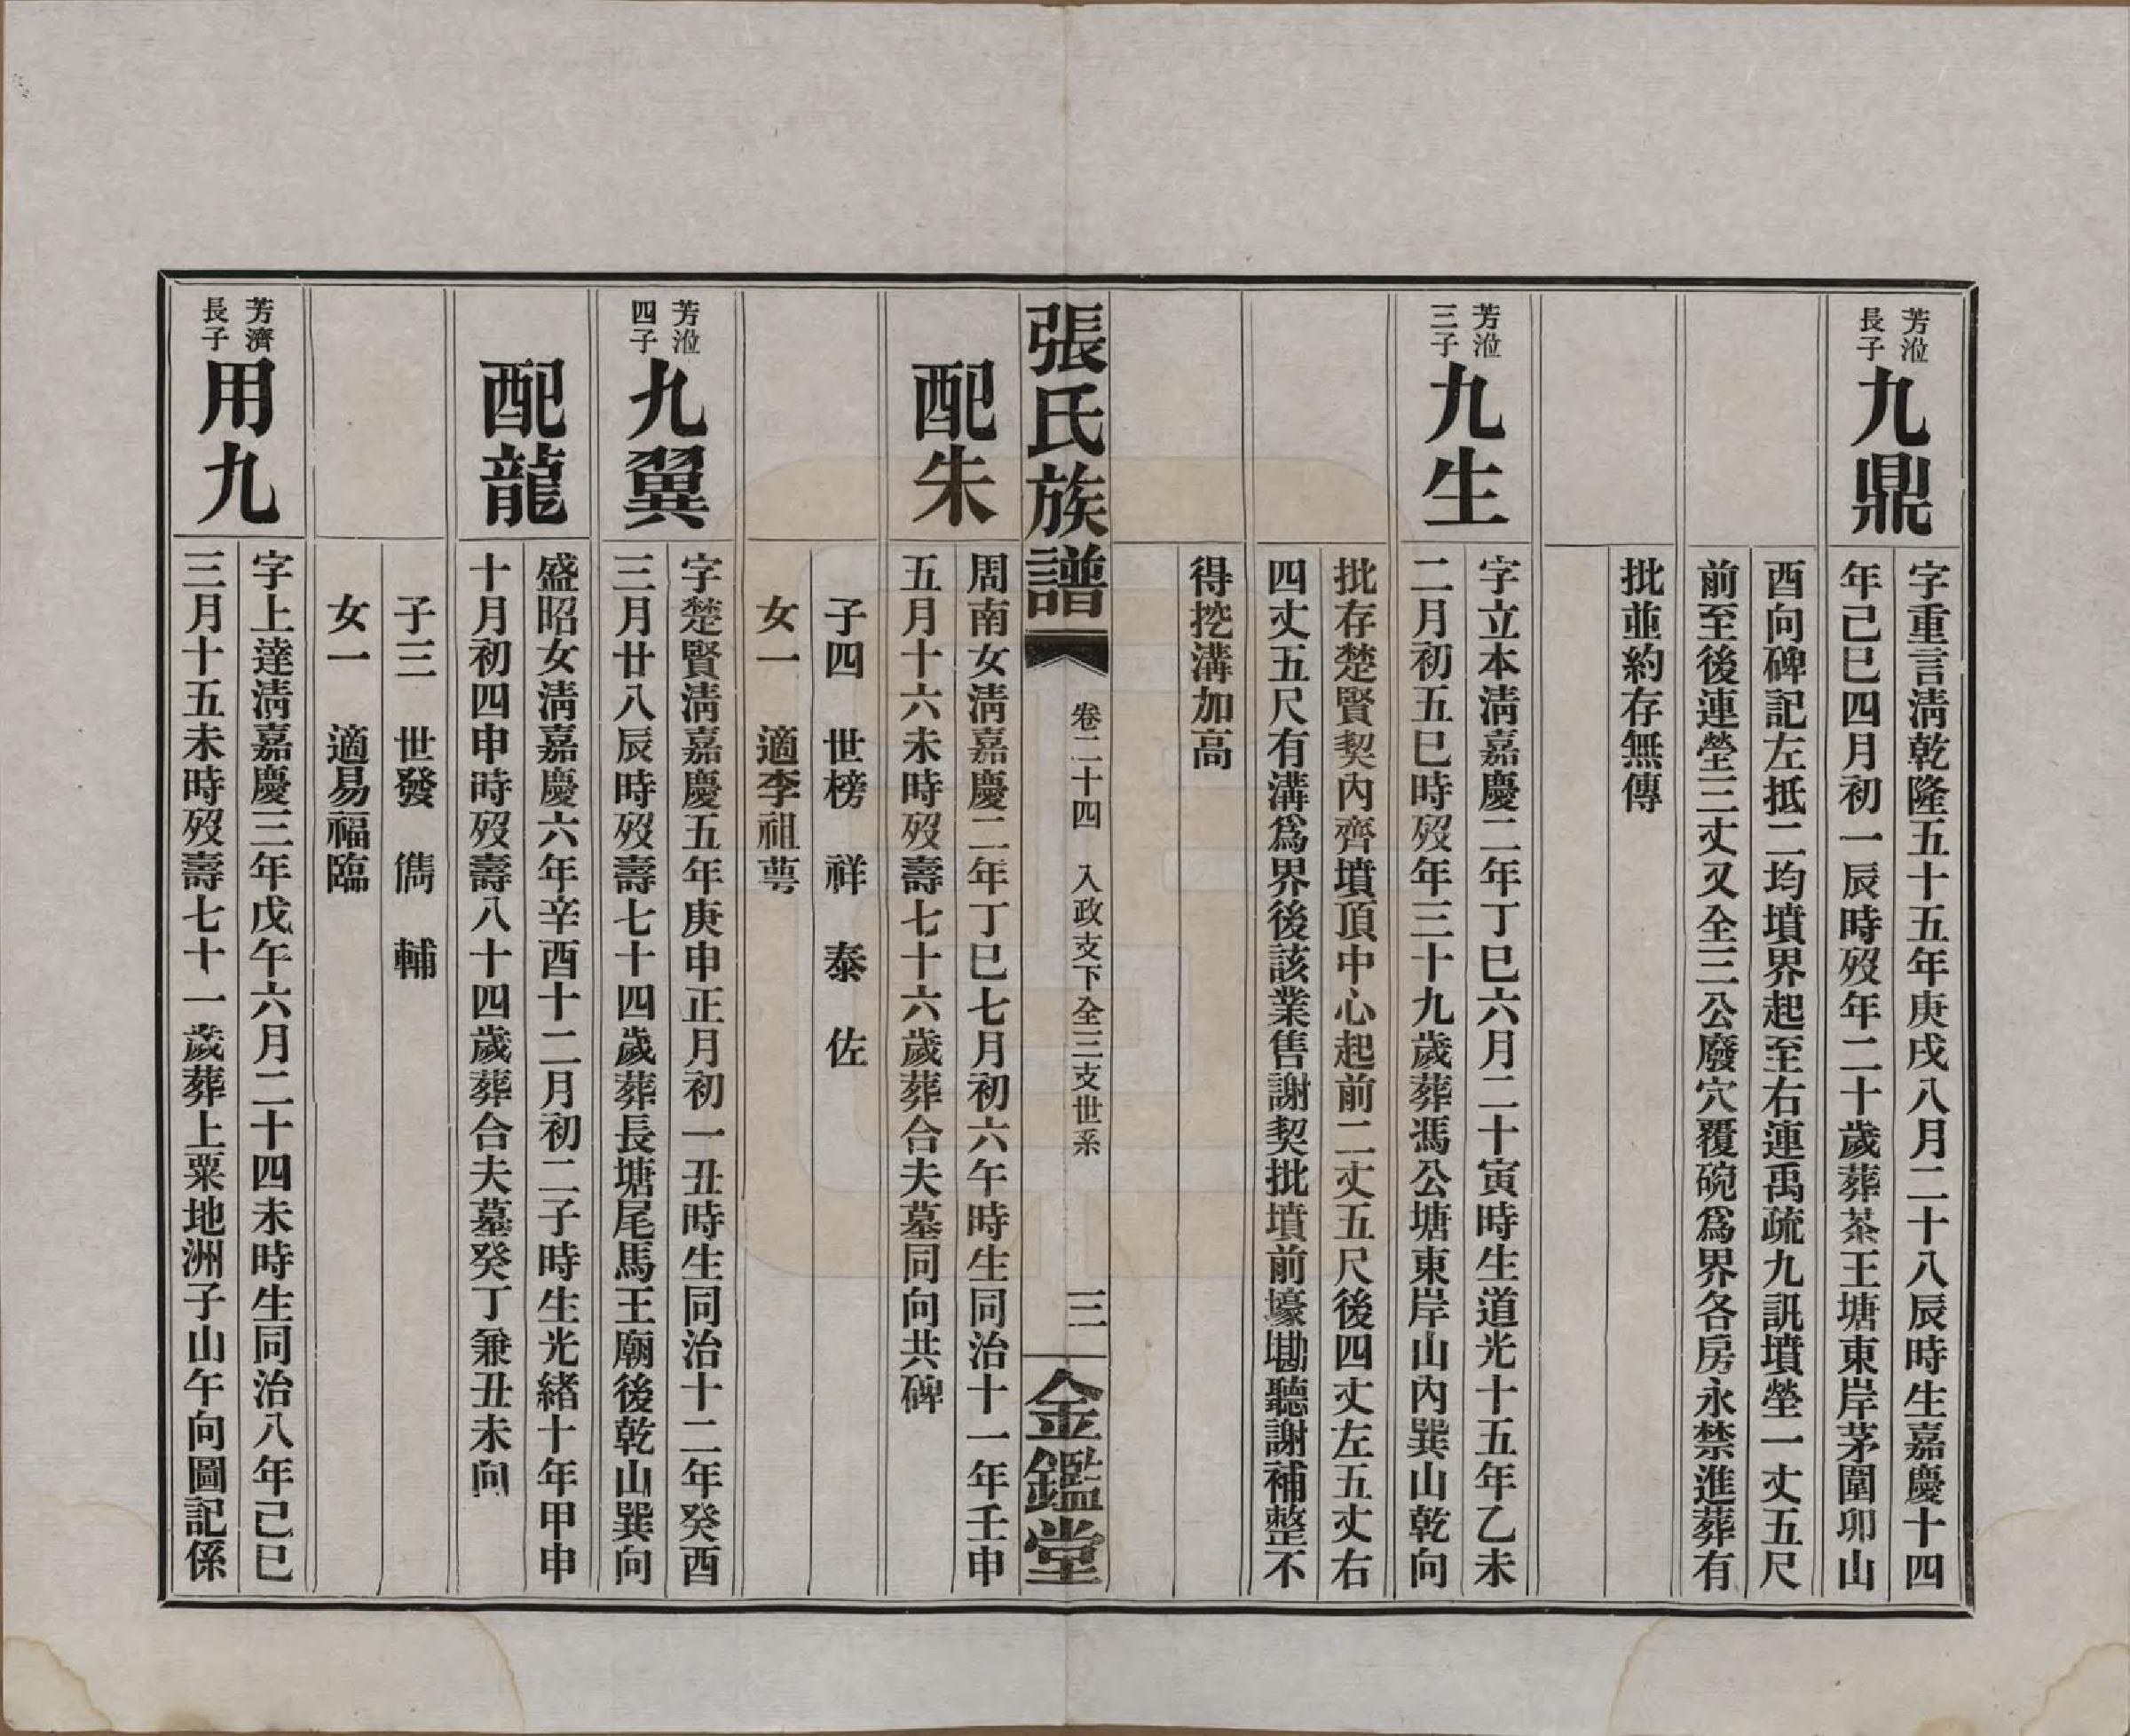 芳涖
長子
九鼎
字重言淸乾隆五十五年庚戌八月二十八辰時生嘉慶十四
年己巳四月初一辰時歿年二十歲葬茶王塘東岸茅圍卯山
酉向碑記左抵二均墳界起至右連禹疏九訊墳塋一丈五尺
前至後連塋三丈又全三公廢穴覆碗爲界各房永禁進葬有
批並約存無傳
芳涖
三子
九生
字立本淸嘉慶二年丁巳六月二十寅時生道光十五年乙未
二月初五巳時歿年三十九歲葬馮公塘東岸山內巽山乾向
批存楚賢契內齊墳頂中心起前二丈五尺後四丈左五丈右
四丈五尺有溝爲界後該業售謝契批墳前壕墈聽謝補整不
得挖溝加高
張氏族譜
卷二十四　入政支下全三支世系
三
金鑑堂
配朱
周南女淸嘉慶二年丁巳七月初六午時生同治十一年壬申
五月十六未時歿壽七十六歲葬合夫墓同向共碑
子四　世榜　祥　泰　佐
女一　適李祖蕚
芳涖
四子
九翼
字楚賢淸嘉慶五年庚申正月初一丑時生同治十二年癸酉
三月廿八辰時歿壽七十四歲葬長塘尾馬王廟後乾山巽向
配龍
盛昭女淸嘉慶六年辛酉十二月初二子時生光緒十年甲申
十月初四申時歿壽八十四歲葬合夫墓癸丁兼丑未向
子三　世發　儁　輔
女一　適易福臨
芳濟
長子
用九
字上達淸嘉慶三年戊午六月二十四未時生同治八年己巳
三月十五未時歿壽七十一歲葬上粟地洲子山午向圖記係